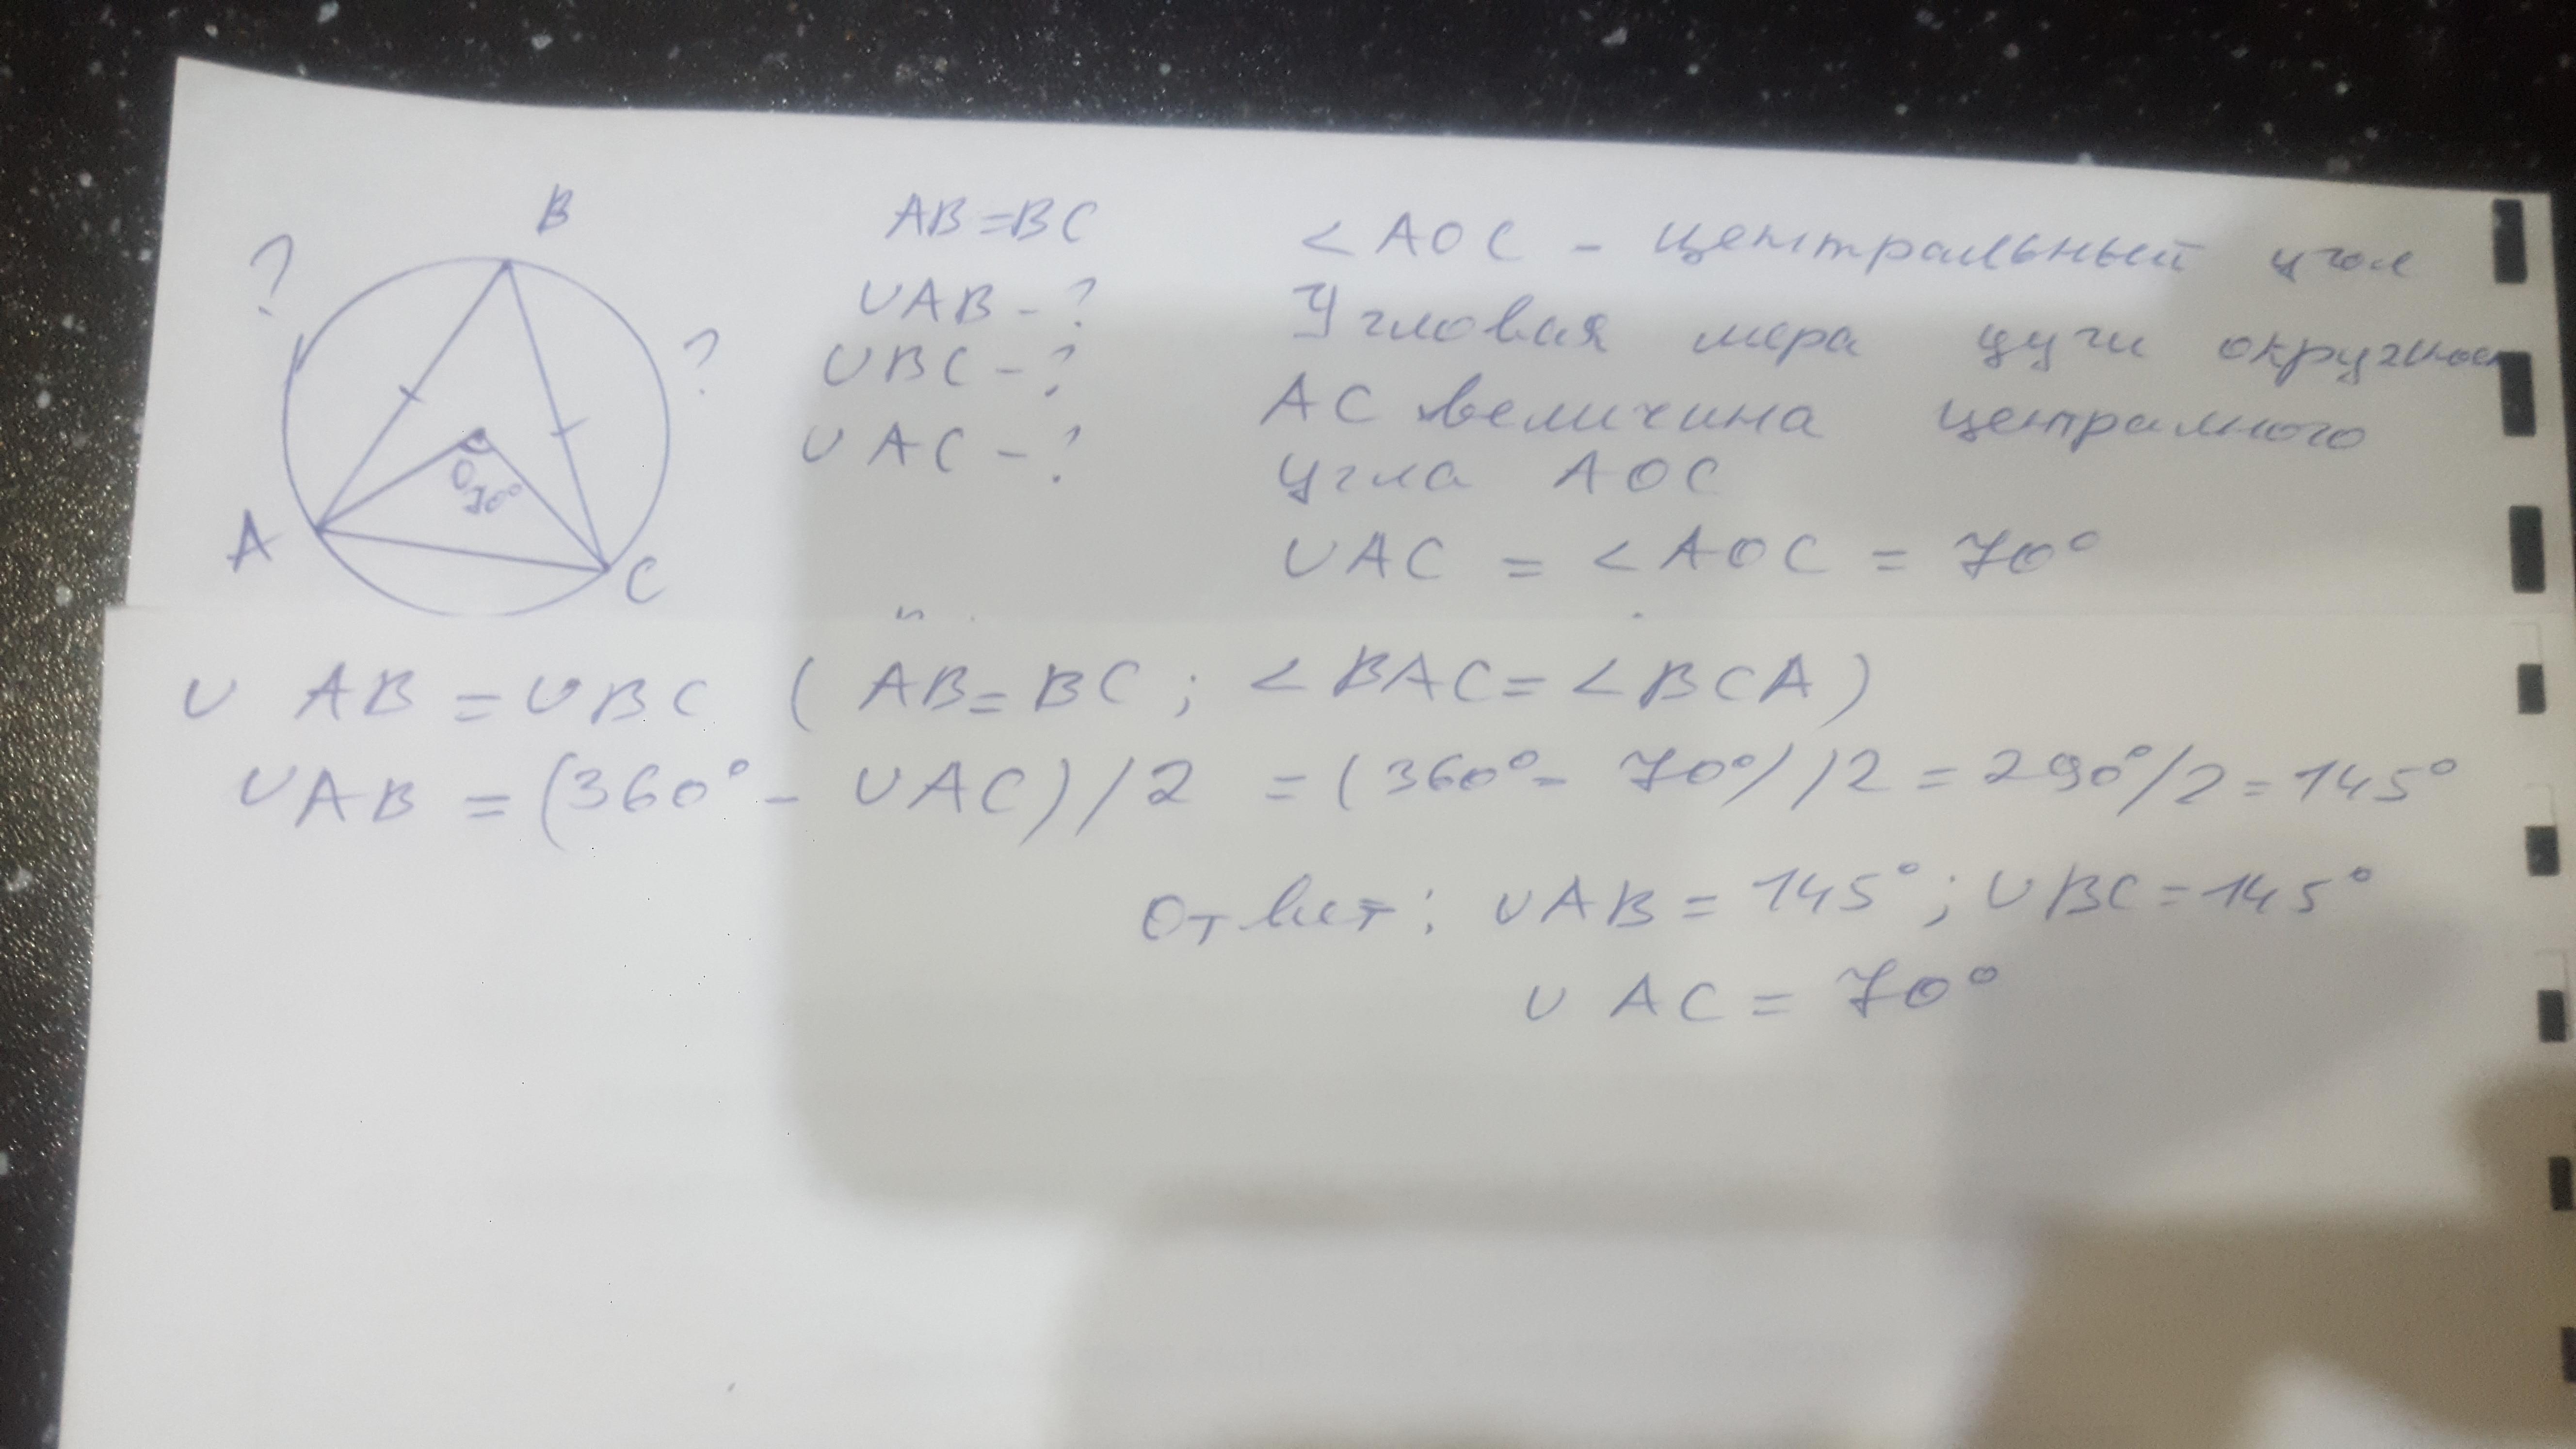 B
?
?
O
70°
A
C
AB=BC
∪AB-?
∪BC-?
∪AC-?
<AOC - центральный угол
Угловая мера дуги
AC величина центрального
угла AOC
∪AC = <AOC = 70°
∪ AB = ∪BC ( AB=BC ; <BAC = <BCA )
∪AB = (360° - ∪AC) / 2 = (360° - 70°) / 2 = 290°/2 = 145°
Ответ: ∪AB = 145°; ∪BC = 145°
∪ AC = 70°